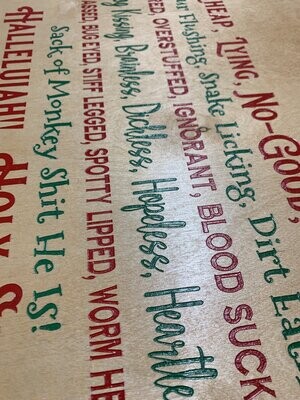 HEAP, LYING, NO-GOOD,
ur Flushing, Snake Licking, Dirt Eat
RED, OVERSTUFFED, IGNORANT, BLOOD SUCK
g Kissing, Brainless, Dickless, Hopeless, Heartle
ASSED, BUG EYED, STIFF LEGGED, SPOTTY LIPPED, WORM HE
Sack of Monkey Shit He Is!
HALLELUJAH! HOLY S